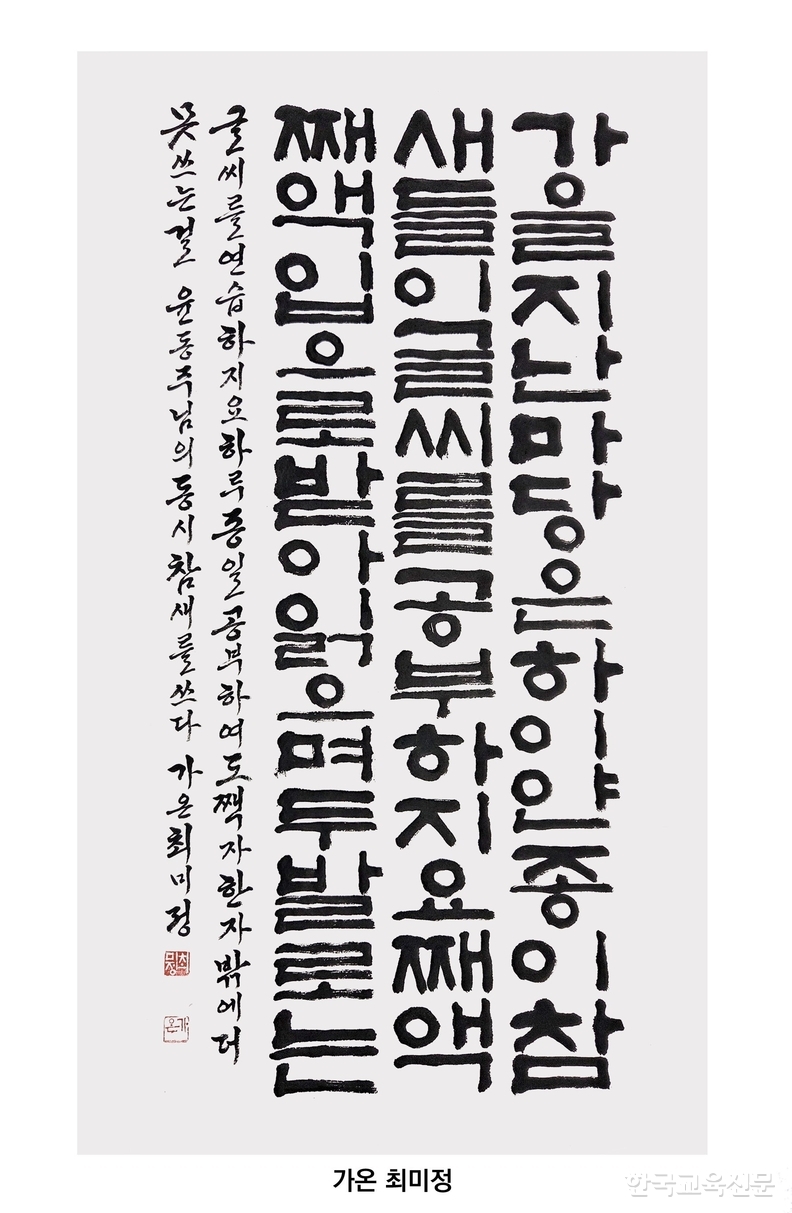 가을지난마당은하이얀종이참
새들이글씨를공부하지요째액
째액입으로받아읽으며두발로는
글씨를연습하지요하루종일공부하여도짹자한자밖에더
못쓰는걸 윤동주님의동시참새를쓰다 가온최미정
최미정
가온
가온 최미정
한국교육신문